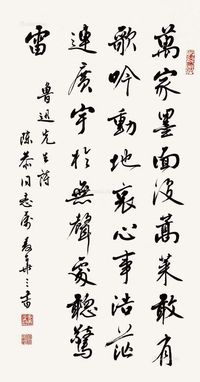 萬家墨面没蒿萊敢有
歌吟動地哀心事浩茫
連廣宇於無聲處聽驚
雷
魯迅先生詩
陳恭同志属